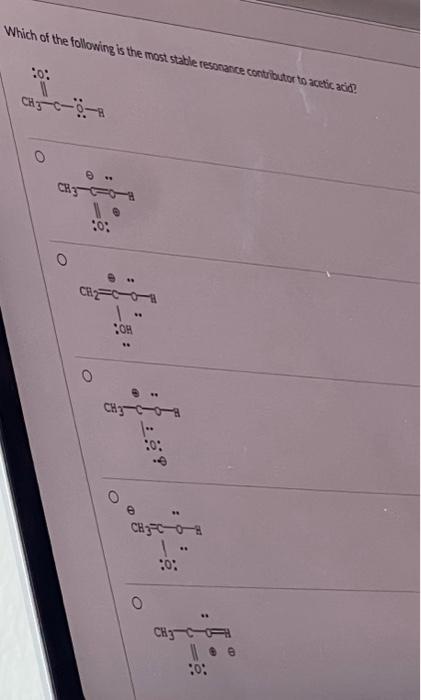 Which of the following is the most stable resonance contributor to acetic acid?
:O:
||
CH3-C-Ö-H
⊖ ..
CH3-C=O-H
|| ⊕
:O:
CH2=C-O-H
| ..
:OH
..
CH3-C-O-H
|..
:O:
..⊖
⊖ ..
CH3=C-O-H
| ..
:O:
..
CH3-C-O=H
|| ⊕ ⊖
:O: